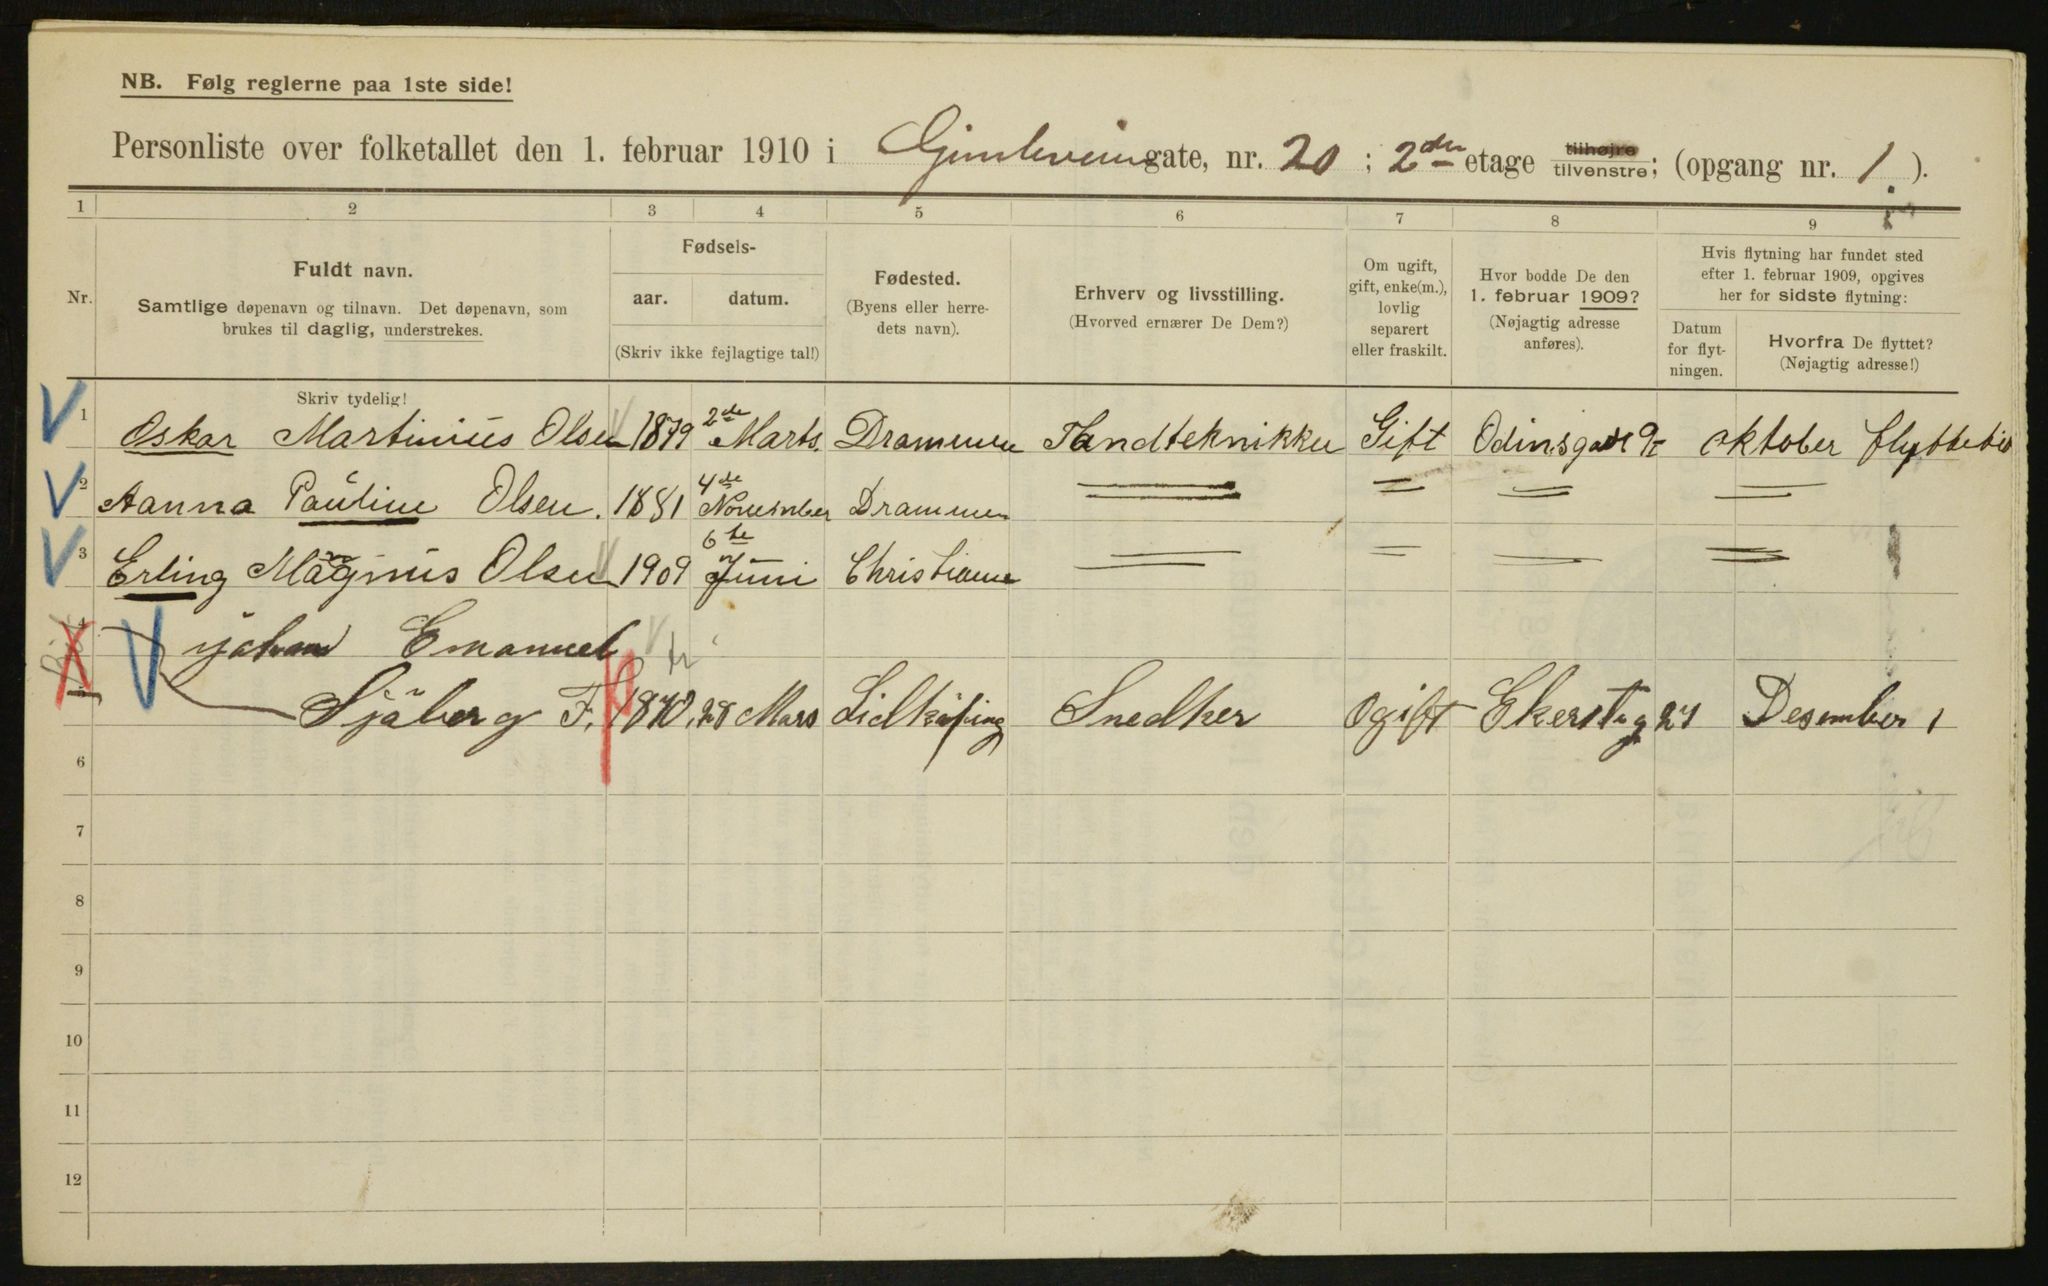 NB. Følg reglerne paa 1ste side!
Personliste over folketallet den 1. februar 1910 i Gimleveien gate, nr. 20 ; 2den etage tilhøjre tilvenstre; (opgang nr. 1 ).
1 2 3 4 5 6 7 8 9
Nr.
Fuldt navn.
Samtlige døpenavn og tilnavn. Det døpenavn, som
brukes til daglig, understrekes.
Fødsels-
aar. datum.
(Skriv ikke fejlagtige tal!)
Fødested.
(Byens eller herre-
dets navn).
Erhverv og livsstilling.
(Hvorved ernærer De Dem?)
Om ugift,
gift, enke(m.),
lovlig
separert
eller fraskilt.
Hvor bodde De den
1. februar 1909?
(Nøjagtig adresse
anføres).
Hvis flytning har fundet sted
efter 1. februar 1909, opgives
her for sidste flytning:
Datum
for flyt-
ningen.
Hvorfra De flyttet?
(Nøjagtig adresse!)
Skriv tydelig!
1 Oskar Martinius Olsen 1879 2de Marts. Drammen Tandtekniker Gift Odinsgade 9 oktober flyttetid
2 Aanna Pauline Olsen. 1881 4de November Drammen
3 Erling Magnus Olsen 1909 6te Juni Christiania
4 Johan Emanuel
5 Sjöberg F. 1870. 28 Mars Lidköping Snedker Ogift Ekerstg 21 Desember 1
6
7
8
9
10
11
12